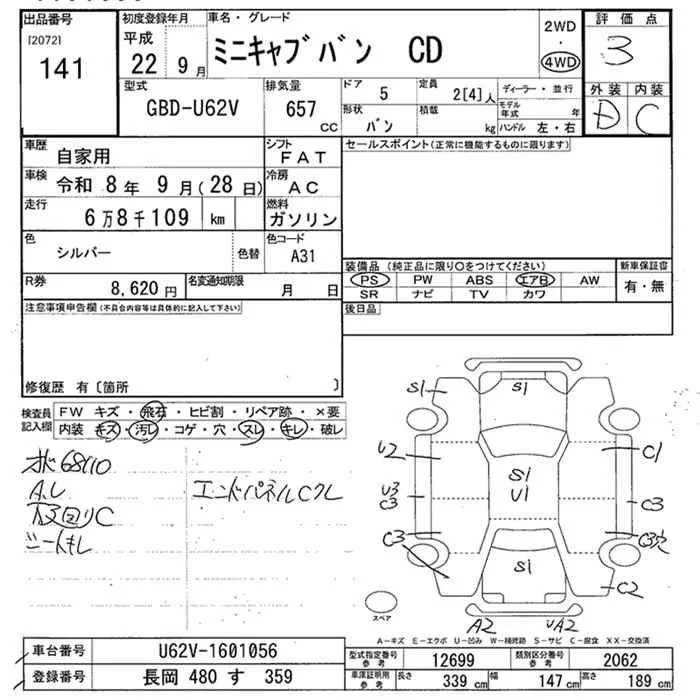 出品番号
[2072]
141
初度登録年月
平成
22 9 月
車名・グレード
ミニキャブバン CD
2WD
・
4WD
評価点
3
外装 内装
D C
型式
GBD-U62V
排気量
657
cc
ドア
5
定員
2[4]人
形状
バン
積載
kg
ディーラー・並行
モデル年式 年
ハンドル 左・右
車歴
自家用
シフト
FAT
車検
令和 8年 9月(28日)
冷房
AC
走行
6万8千109 km
燃料
ガソリン
色
シルバー
色替
色コード
A31
R券
8,620 円
名変通知期限
月 日
セールスポイント(正常に機能するものに限ります)
装備品(純正品に限り○をつけてください)
新車保証書
PS PW ABS エアB AW
SR ナビ TV カワ
有・無
後日品
注意事項申告欄(不具合内容等は具体的に記入して下さい)
修復歴 有〔箇所 〕
検査員記入欄
FW キズ・飛石・ヒビ割・リペア跡・×要
内装 キズ・汚レ・コゲ・穴・スレ・キレ・破レ
68110
下回りC
シートキレ
エンドパネルCクレ
S1
S1
U2
C1
S1
U1
U3
C3
C3
C3
C3穴
S1
C2
A2
UA2
スペア
A-キズ E-エクボ U-凹み W-補修跡 S-サビ C-腐食 XX-交換済
車台番号
U62V-1601056
登録番号
長岡 480 す 359
型式指定番号
参考
12699
類別区分番号
参考
2062
車庫証明用
参考
長さ
339 cm
幅
147 cm
高さ
189 cm